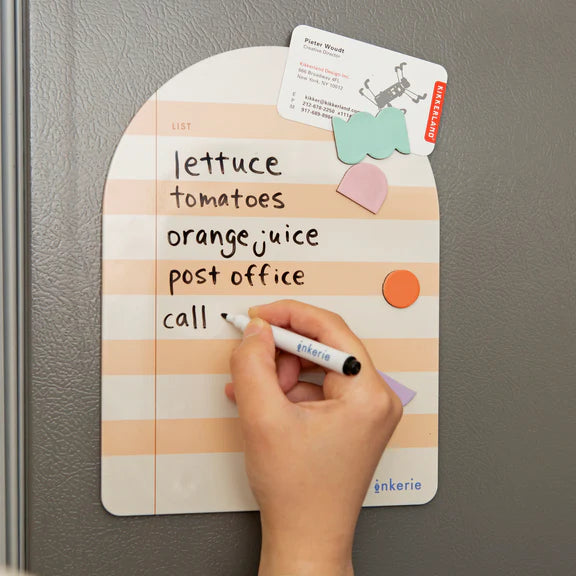 Pieter Woudt
Creative Director
Kikkerland Design Inc.
666 Broadway 4FL
New York, NY 10012
E kikker@kikkerland.com
P 212-678-2250
M 917-689-
KIKKERLAND
LIST
lettuce
tomatoes
orange juice
post office
call
inkerie
inkerie